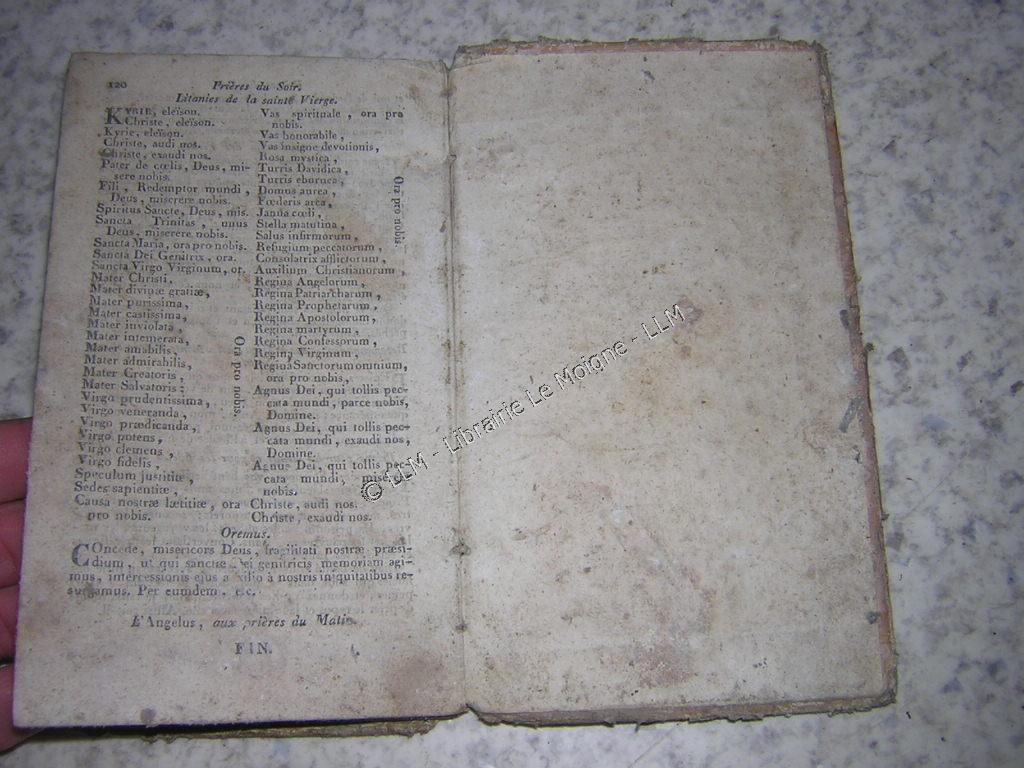 120 Prières du Soir.
Litanies de la sainte Vierge.
KYRIE, eleïson.
Christe, eleïson.
Kyrie, eleïson.
Christe, audi nos.
Christe, exaudi nos.
Pater de cœlis, Deus, mi-
sere nobis.
Fili, Redemptor mundi,
Deus, miserere nobis.
Spiritus Sancte, Deus, mis.
Sancta Trinitas, unus
Deus, miserere nobis.
Sancta Maria, ora pro nobis.
Sancta Dei Genitrix, ora.
Sancta Virgo Virginum, or.
Mater Christi,
Mater divinæ gratiæ,
Mater purissima,
Mater castissima,
Mater inviolata,
Mater intemerata,
Mater amabilis,
Mater admirabilis,
Mater Creatoris,
Mater Salvatoris;
Virgo prudentissima,
Virgo veneranda,
Virgo prædicanda,
Virgo potens,
Virgo clemens,
Virgo fidelis,
Speculum justitiæ,
Sedes sapientiæ,
Ora pro nobis.
Causa nostræ lætitiæ, ora
pro nobis.
Vas spirituale, ora pro
nobis.
Vas honorabile,
Vas insigne devotionis,
Rosa mystica,
Turris Davidica,
Turris eburnea,
Domus aurea,
Fœderis arca,
Janua cœli,
Stella matutina,
Salus infirmorum,
Refugium peccatorum,
Consolatrix afflictorum,
Auxilium Christianorum,
Regina Angelorum,
Regina Patriarcharum,
Regina Prophetarum,
Regina Apostolorum,
Regina martyrum,
Regina Confessorum,
Regina Virginum,
Ora pro nobis.
Regina Sanctorum omnium,
ora pro nobis,
Agnus Dei, qui tollis pec-
cata mundi, parce nobis,
Domine.
Agnus Dei, qui tollis pec-
cata mundi, exaudi nos,
Domine.
Agnus Dei, qui tollis pec-
cata mundi, misere
nobis.
Christe, audi nos.
Christe, exaudi nos.
Oremus.
COncede, misericors Deus, fragilitati nostræ præsi-
dium, ut qui sanctæ Dei genitricis memoriam agi-
mus, intercessionis ejus auxilio à nostris iniquitatibus re-
surgamus. Per eumdem, etc.
L'Angelus, aux prières du Matin.
FIN.
© LLM - Librairie Le Moigne - LLM